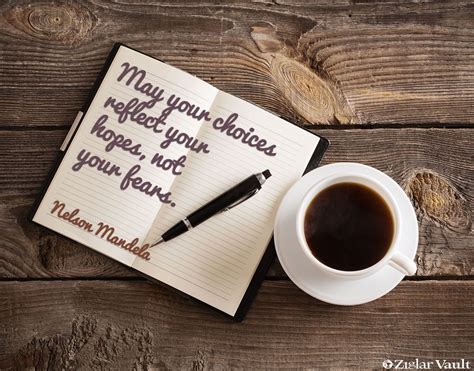 May your choices
reflect your
hopes, not
your fears.
Nelson Mandela
Ziglar Vault